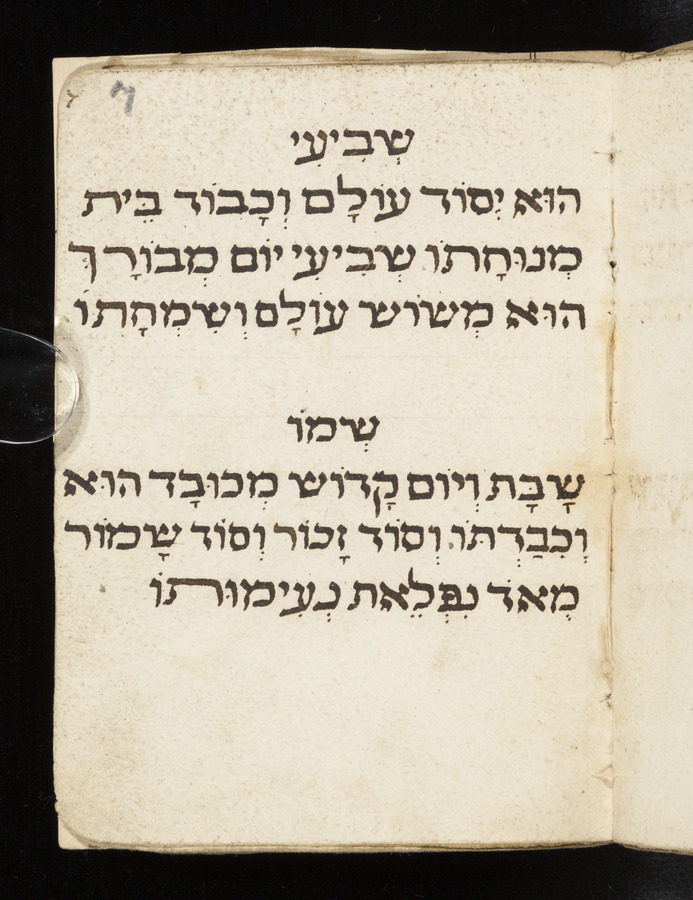 שְׁבִיעִי
הוּא יְסוֹד עוֹלָם וְכָבוֹד בֵּית
מְנוּחָתוֹ שְׁבִיעִי יוֹם מְבוֹרָךְ
הוּא מְשׂוֹשׂ עוֹלָם וְשִׂמְחָתוֹ
שְׁמוֹ
שַׁבָּת וְיוֹם קָדוֹשׁ מְכוּבָּד הוּא
וְכִבַּדְתּוֹ וְסוֹד זָכוֹר וְסוֹד שָׁמוֹר
מְאֹד נִפְלֵאת נְעִימוּתוֹ